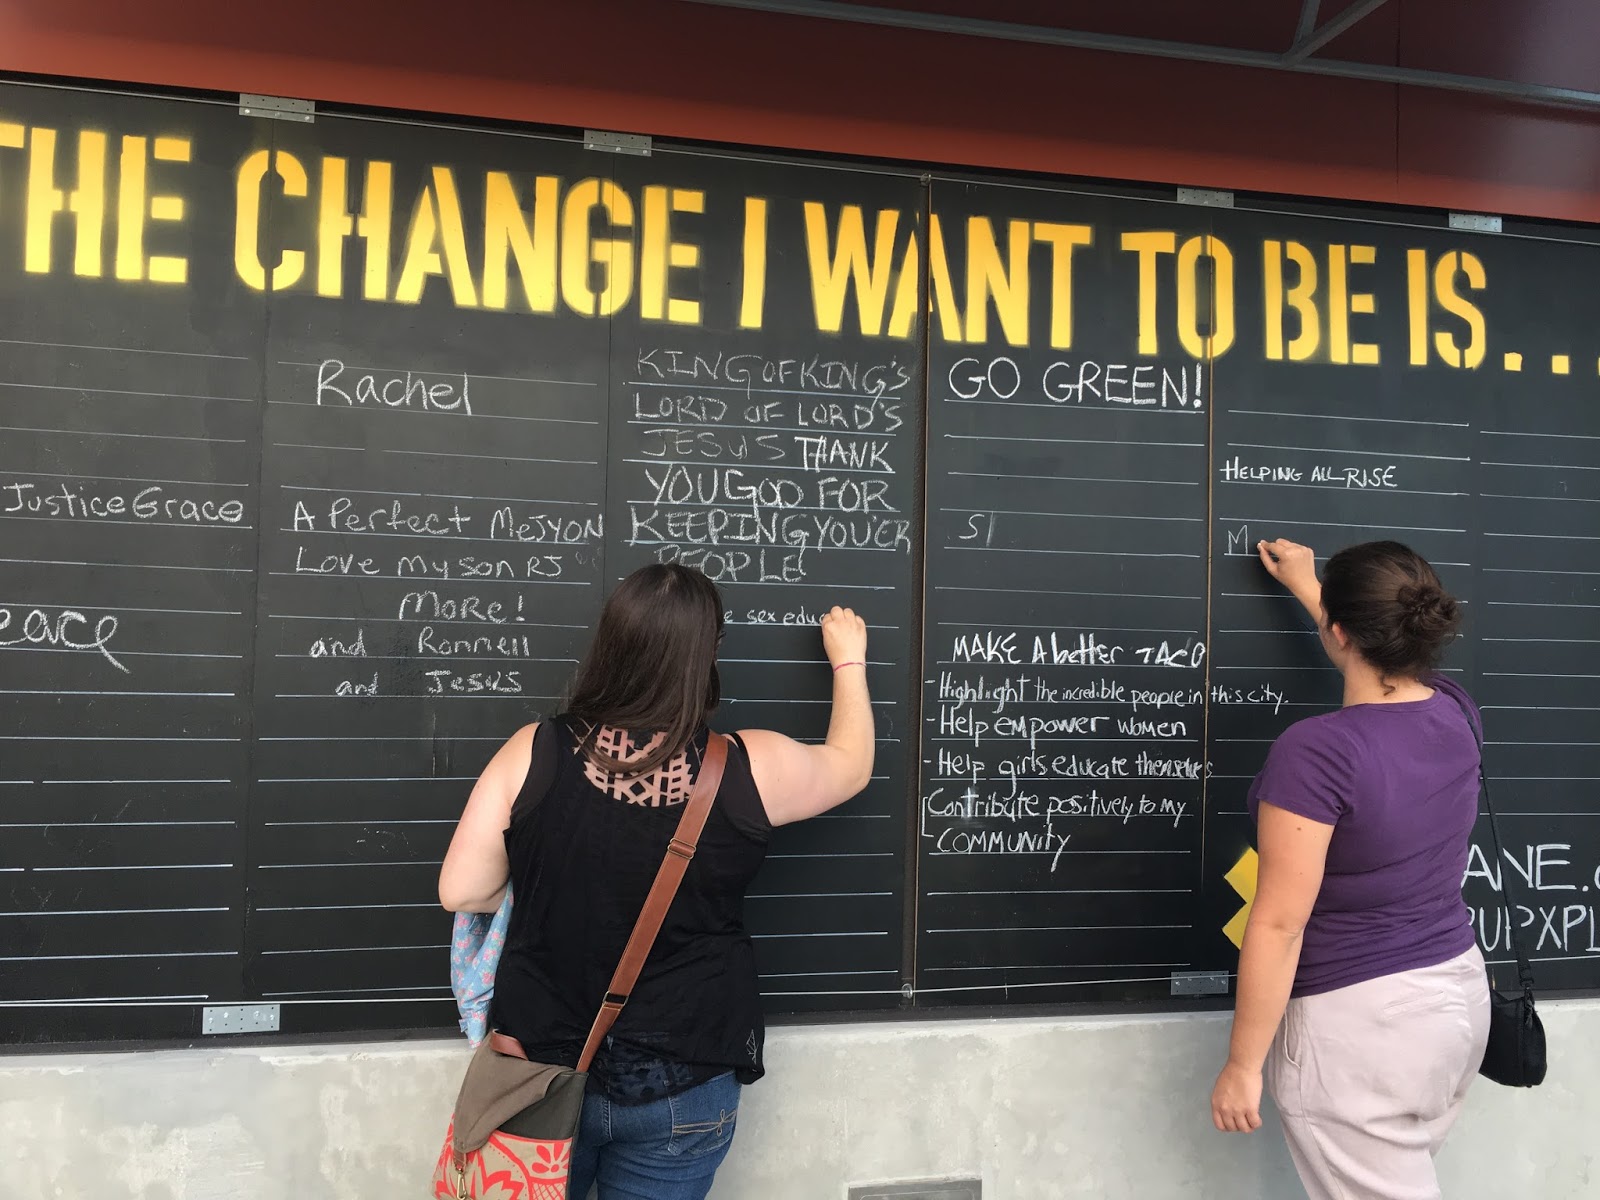 THE CHANGE I WANT TO BE IS...
Justice Grace
eace
Rachel
A Perfect MeJYON
Love my son RJ
MORE!
and Ronnell
and Jesus
KING OF KING'S
LORD OF LORD'S
JESUS THANK
YOU GOD FOR
KEEPING YOU'ER
PEOPLE
e sex educ
GO GREEN!
SI
MAKE A better TACO
- Highlight the incredible people in this city.
- Help empower women
- Help girls educate themselves
Contribute positively to my
COMMUNITY
HELPING ALL RISE
M
ANE.
RUPXPL